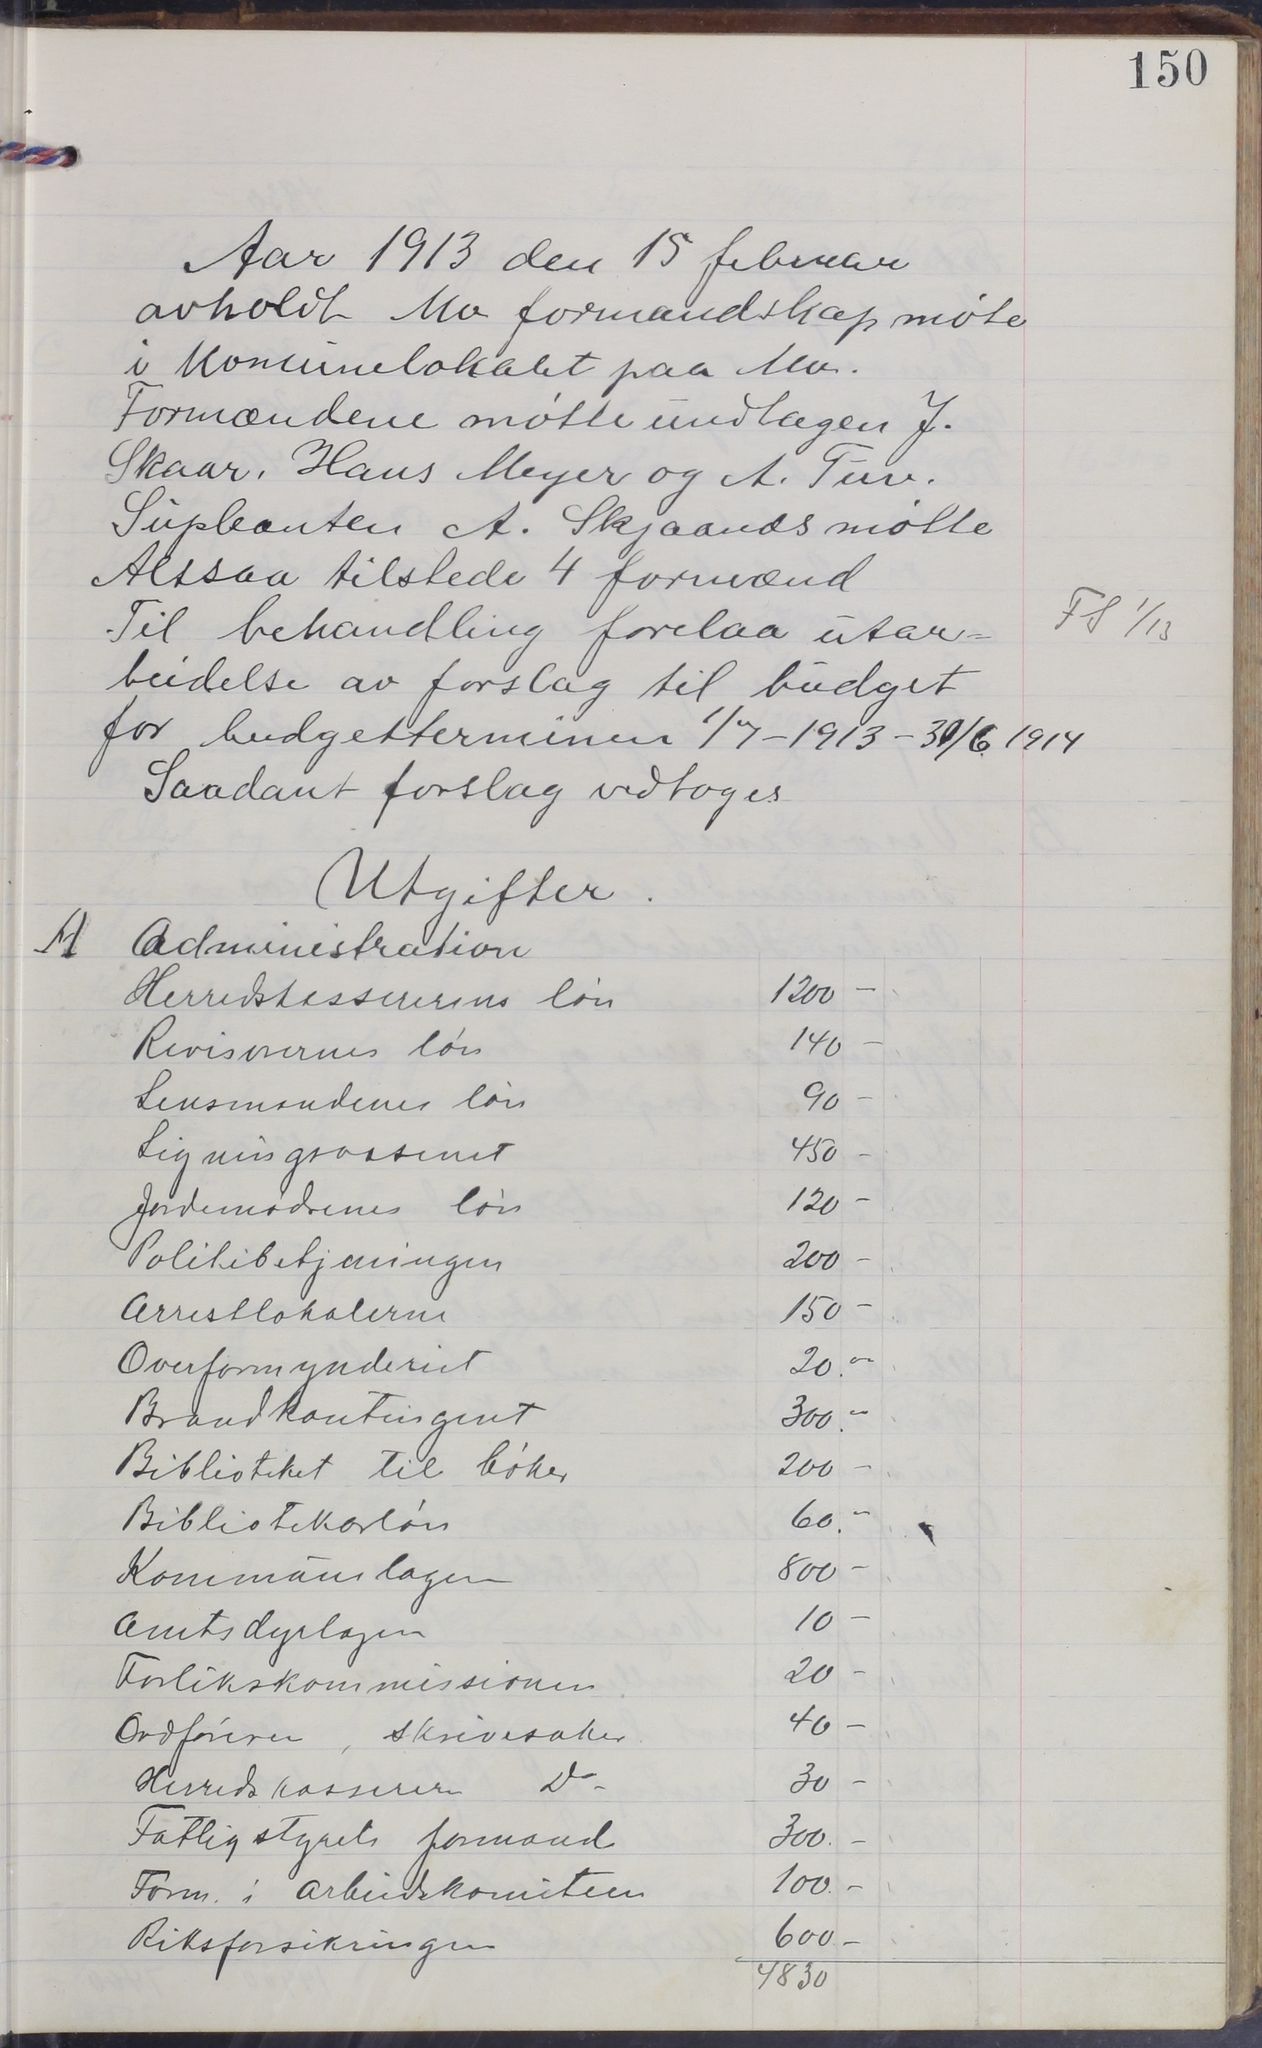 150
Aar 1913 den 15 februar
avholdt Mo formandskap møte
i Komunelokalet paa Mo.
Formændene møtte undtagen J.
Skaar, Hans Meyer og A. Tuv.
Supleanten A. Skjaands møtte
Altsaa tilstede 4 formænd
Til behandling forelaa utar- FS 1/13
beidelse av forslag til budget
for budgetterminen 1/7-1913-30/6 1914
Saadant forslag vedtoges
Utgifter.
A Administration
Herredskassererens løn 1200 -
Revisorernes løn 140 -
Lensmandenes løn 90 -
Ligningsvæsenet 450 -
Jordemødrenes løn 120 -
Politibetjeningen 200 -
Arrestlokalerne 150 -
Overformynderiet 20.-
Brandkontingent 300.-
Biblioteket til bøker 200 -
Bibliotekarløn 60.-
Kommünelagen 800 -
Amtsdyrlægen 10 -
Forlikskommissionen 20 -
Ordføreren, skrivesaker 40 -
Herredskassereren Do- 30 -
Fattigstyrets formand 300.-
Form. i arbeidskomiteen 100.-
Riksforsikringen 600 -
4830